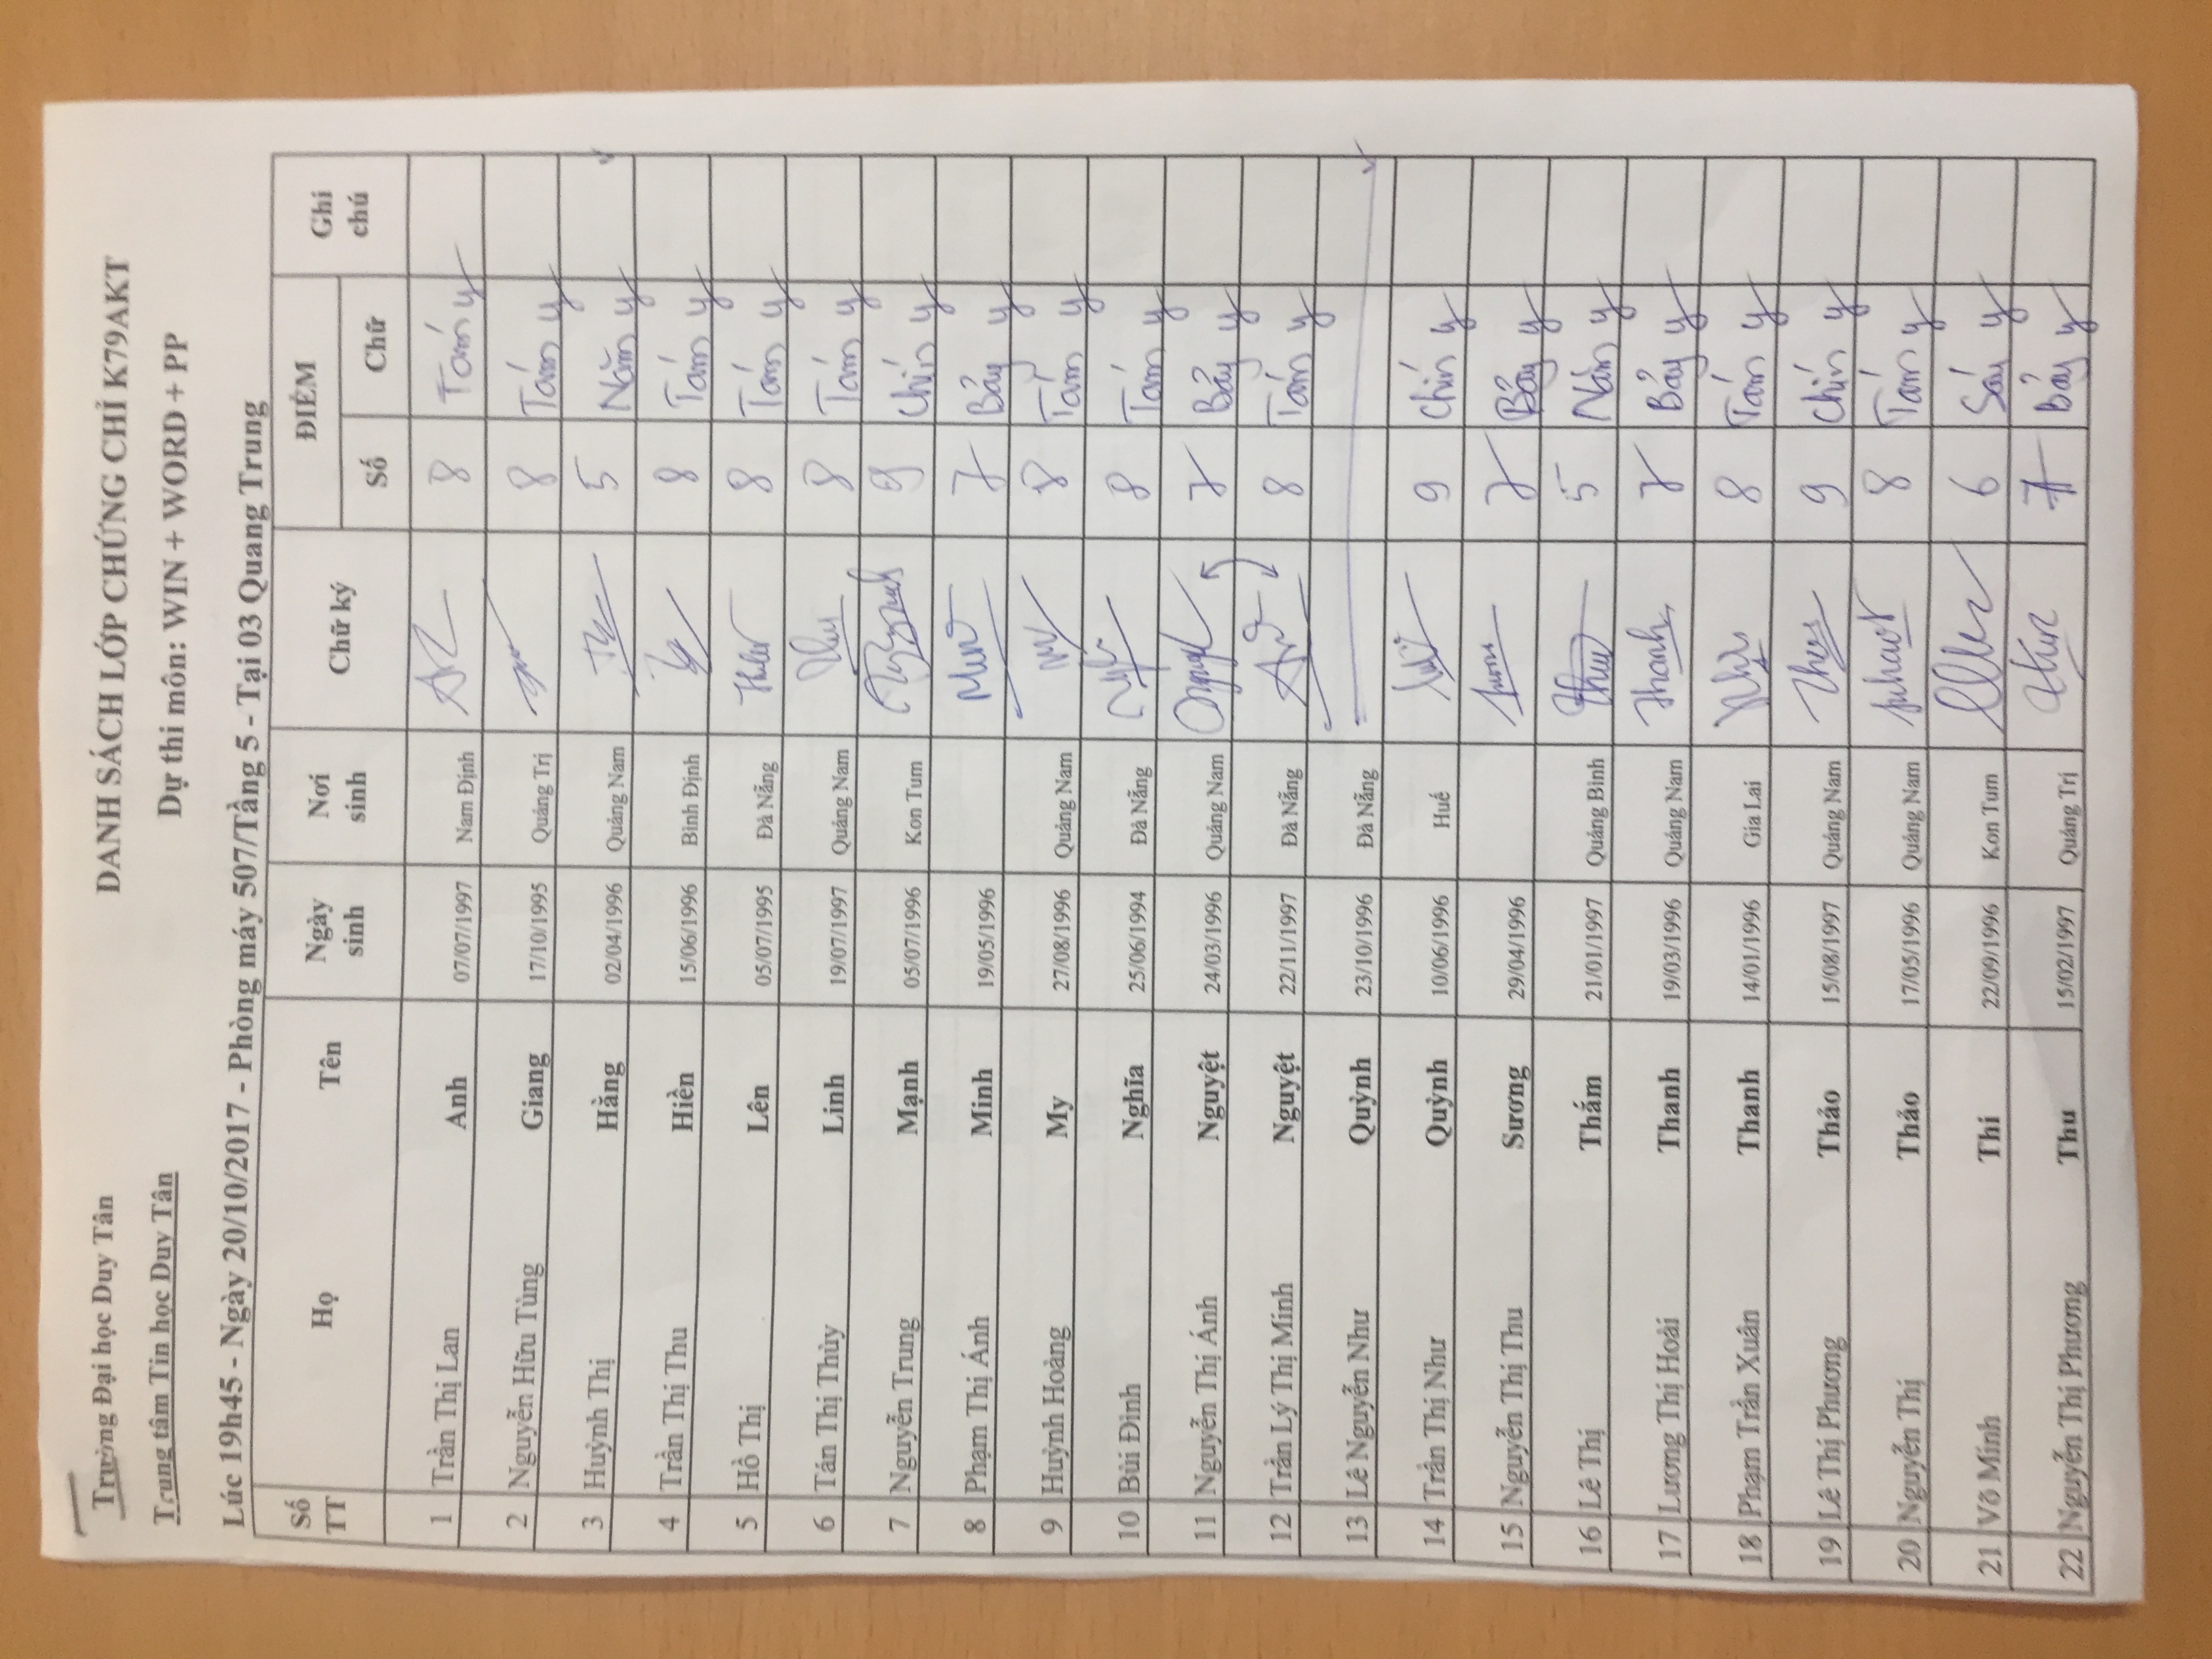 Trường Đại học Duy Tân
DANH SÁCH LỚP CHỨNG CHỈ K79AKT
Trung tâm Tin học Duy Tân
Dự thi môn: WIN + WORD + PP
Lúc 19h45 - Ngày 20/10/2017 - Phòng máy 507/Tầng 5 - Tại 03 Quang Trung
Số TT Họ Tên Ngày sinh Nơi sinh Chữ ký ĐIỂM Ghi chú
Số Chữ
1 Trần Thị Lan Anh 07/07/1997 Nam Định 8 Tám
2 Nguyễn Hữu Tùng Giang 17/10/1995 Quảng Trị 8 Tám
3 Huỳnh Thị Hằng 02/04/1996 Quảng Nam 5 Năm
4 Trần Thị Thu Hiền 15/06/1996 Bình Định 8 Tám
5 Hồ Thị Lên 05/07/1995 Đà Nẵng 8 Tám
6 Tán Thị Thùy Linh 19/07/1997 Quảng Nam 8 Tám
7 Nguyễn Trung Mạnh 05/07/1996 Kon Tum 9 Chín
8 Phạm Thị Ánh Minh 19/05/1996 Minh 7 Bảy
9 Huỳnh Hoàng My 27/08/1996 Quảng Nam My 8 Tám
10 Bùi Đình Nghĩa 25/06/1994 Đà Nẵng 8 Tám
11 Nguyễn Thị Ánh Nguyệt 24/03/1996 Quảng Nam 7 Bảy
12 Trần Lý Thị Minh Nguyệt 22/11/1997 Đà Nẵng 8 Tám
13 Lê Nguyễn Như Quỳnh 23/10/1996 Đà Nẵng
14 Trần Thị Như Quỳnh 10/06/1996 Huế 9 Chín
15 Nguyễn Thị Thu Sương 29/04/1996 7 Bảy
16 Lê Thị Thắm 21/01/1997 Quảng Bình 5 Năm
17 Lương Thị Hoài Thanh 19/03/1996 Quảng Nam Thanh 7 Bảy
18 Phạm Trần Xuân Thanh 14/01/1996 Gia Lai 8 Tám
19 Lê Thị Phương Thảo 15/08/1997 Quảng Nam 9 Chín
20 Nguyễn Thị Thảo 17/05/1996 Quảng Nam 8 Tám
21 Võ Minh Thi 22/09/1996 Kon Tum 6 Sáu
22 Nguyễn Thị Phương Thu 15/02/1997 Quảng Trị 7 Bảy